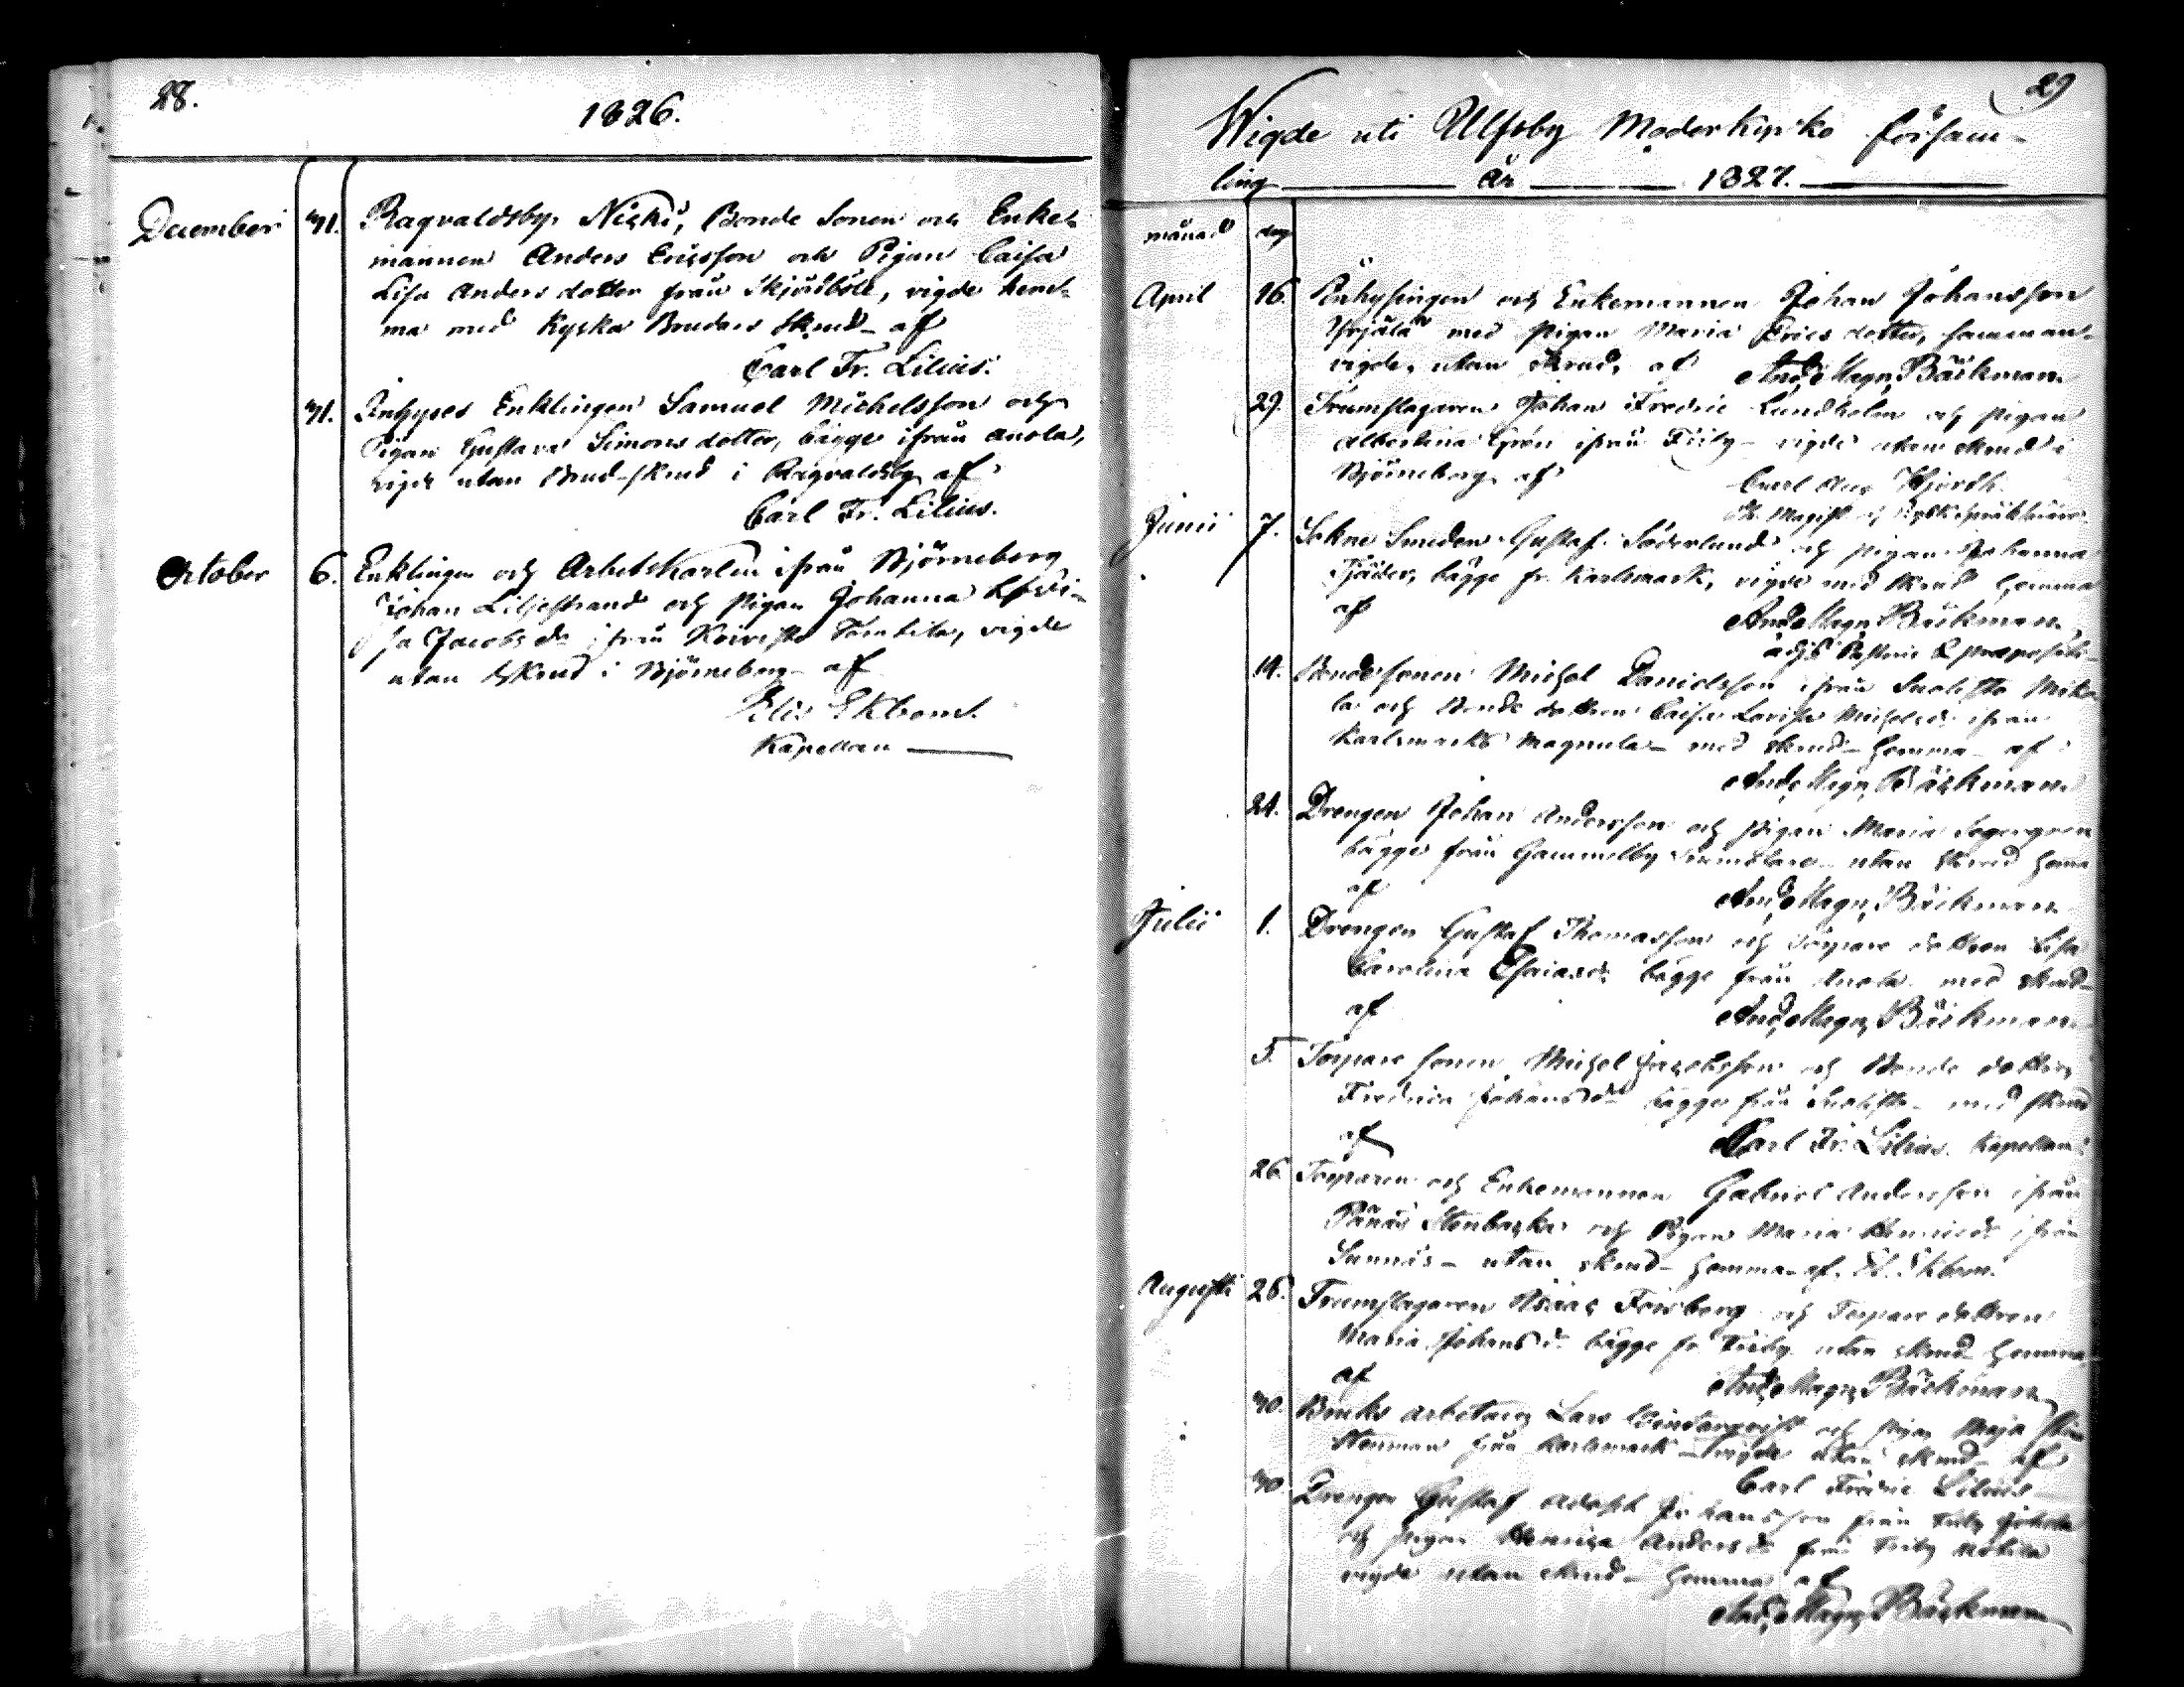 28.
1826.
December 31. Ragvaldsby Niski, Bonde Sonen och Enke-
mannen Anders Ericsson och Pigan Caisa
Lisa Anders dotter från Skjödböle, vigde hem-
ma med Kyrko Brudar Skrud af
Carl Fr. Lilius.
31. Inhyses Enklingen Samuel Michelsson och
Pigan Gustava Simons dotter, bägge ifrån Anola,
vigde utan Brud-skrud i Ragvaldsby af
Carl Fr. Lilius.
October 6. Enklingen och Arbetskarlen ifrån Björneborg
Johan Liljestrand och Pigan Johanna Lovi-
sa Jacobs dr ifrån Koivisto, vigde
utan skrud i Björneborg af
Elis Ekbom.
Kapellan
29
Wigde uti Ulfsby Moderkyrko församl-
ling år 1827.
månad dag
April 16. Inhysingen och Enkemannen Johan Johansson
med pigan Maria Erics dotter, samman-
vigde, utan skrud, af And. Magn. Bäckman
29. Trumslagaren Johan Fredric Lundholm och pigan
Albertina Grön ifrån Friby vigde utan skrud i
Björneborg af Carl Hjordh.
Ph. Magist.
Junii 7. Sokne Smeden Gustaf Söderlund och pigan Johanna
bägge fr. Karlsmark, vigde med skrud hemma
af And. Magn. Bäckman
adj. Pastoris & praepositi
14. Bondesonen Michel Danielsson ifrån Suolisto Mika-
la och Bonde dottren Caisa Lovisa Michelsdr ifrån
Karlsmarks Magnula med skrud hemma af
And. Magn. Bäckman
24. Drengen Johan Andersson och pigan Maria Segergren
bägge från Gammelby utan skrud hema
af And. Magn. Bäckman
Julii 1. Drengen Gustaf Thomasson och Torpare dottren Lisa
Carolina Esaiasdr bägge från Anola med skrud
af And. Magn. Bäckman
5. Torpare sonen Michel Jacobsson och Bonde dottren
Fredrica Johansdr bägge från Suolisto med skrud
af Carl Fr. Lilius. Kapellan
26. Torparen och Enkemannen Gabriel Andersson ifrån
Pänäs Stenbacka och Pigan Maria Henricsdr ifrån
Sunnäs utan skrud hemma af El. Ekbom.
Augusti 26. Trumslagaren Isaac Forsberg och Torpare dottren
Maria Johansdr bägge fr. Friby utan skrud hemma
af And. Magn. Bäckman
30. Bruks arbetaren Lars och pigan Maja
Stenman från Karlsmark vigde utan skrud af
Carl Fredric Lilius
30. Drengen Gustaf Adolph Johansson från Friby
och pigan Henrica Andersdr från Friby
vigde utan skrud hemma af
And. Magn. Bäckman